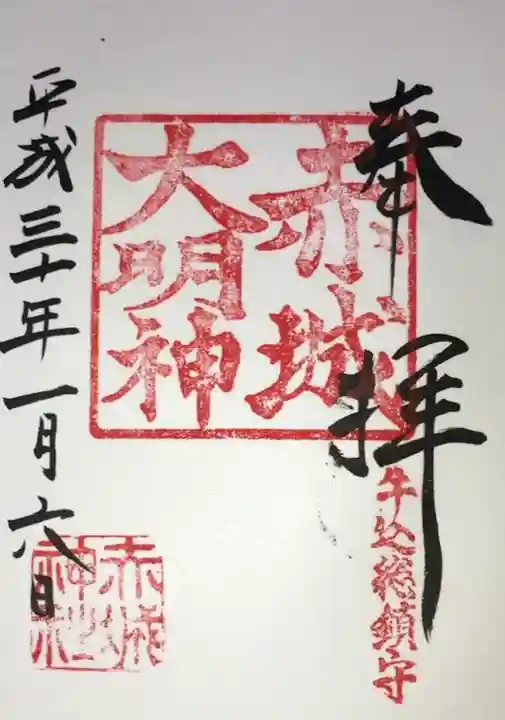 奉拝
牛込総鎮守
赤城
大明神
赤城
神社
平成三十年一月六日